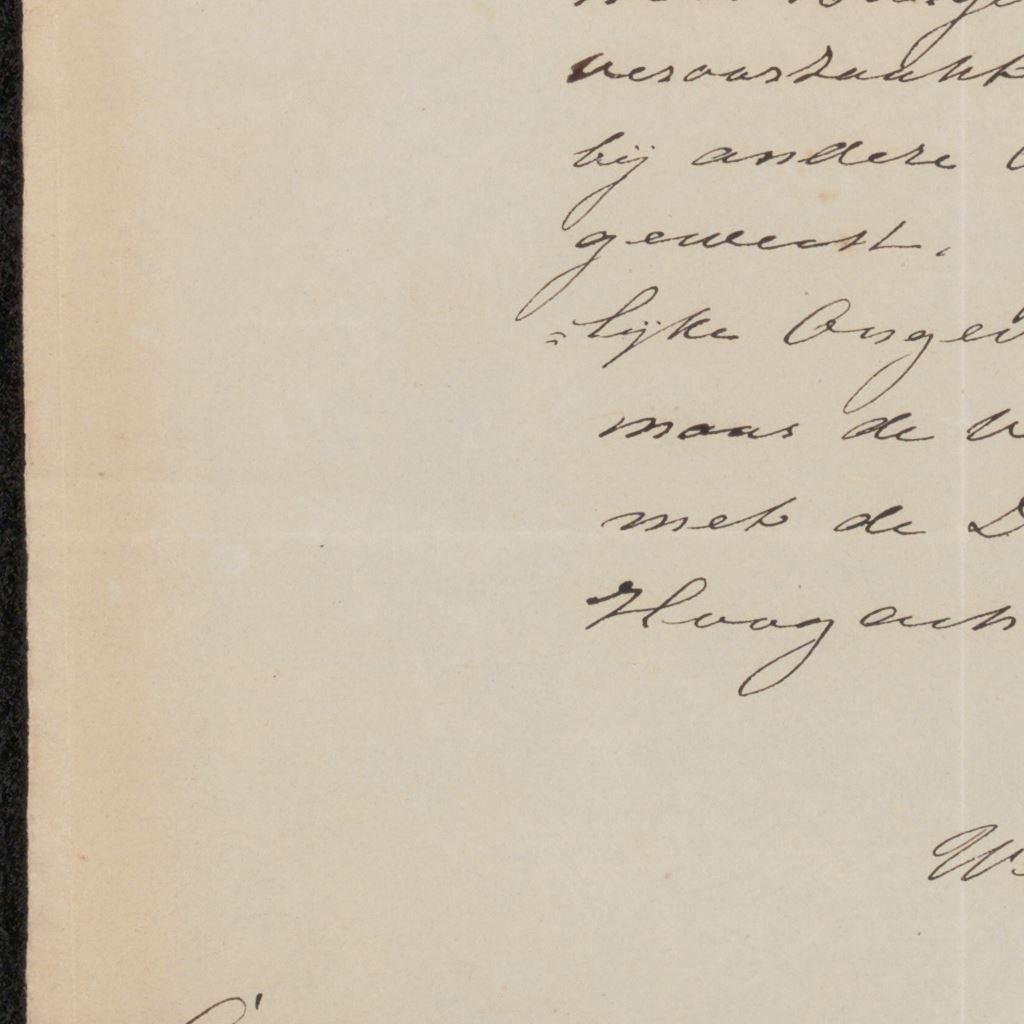 veroorzaakt
bij andere
geweest.
=lijke Ongev
maar de
met de D
Hoogach